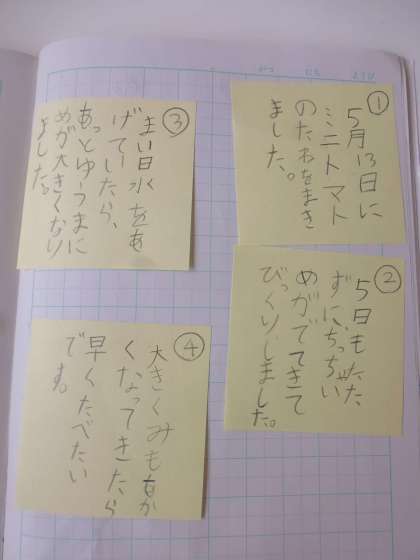 ①
5月13日に
ミニトマト
のたねをまき
ました。
②
5日もたた
ずに、ちっちゃい
めがでてきて
びっくりしました。
③
まい日水をあ
げていたら、
あっとゆうまに
めが大きくなり
ました。
④
大きくみもなか
くなってきたら
早くたべたい
です。